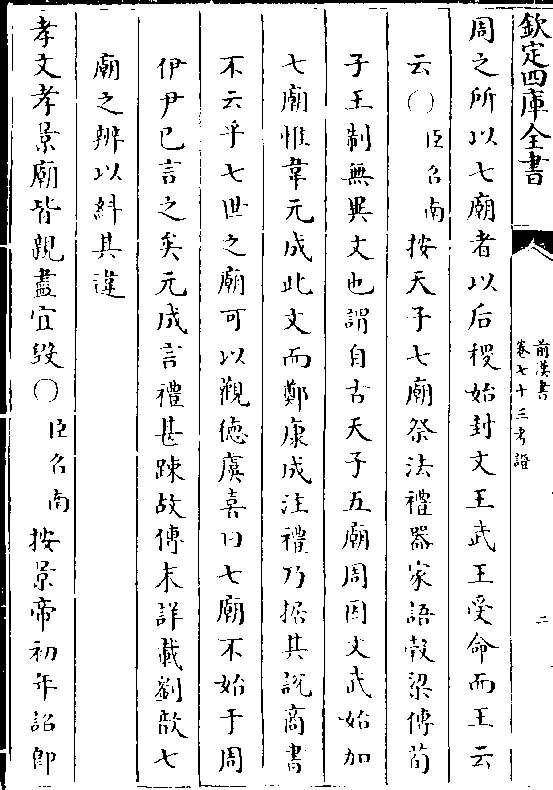 欽定四庫全書
前漢書
卷七十三考證
二
周之所以七廟者以后稷始封文王武王受命而王云
云○臣召南按天子七廟祭法禮器家語穀梁傳荀
子王制無異文也謂自古天子五廟周因文武始加
七廟惟韋元成此文而鄭康成注禮乃据其說商書
不云乎七世之廟可以觀德虞喜曰七廟不始于周
伊尹已言之矣元成言禮甚踈故傳末詳載劉歆七
廟之辨以糾其違
孝文孝景廟皆親盡宜毀○臣召南按景帝初年詔即